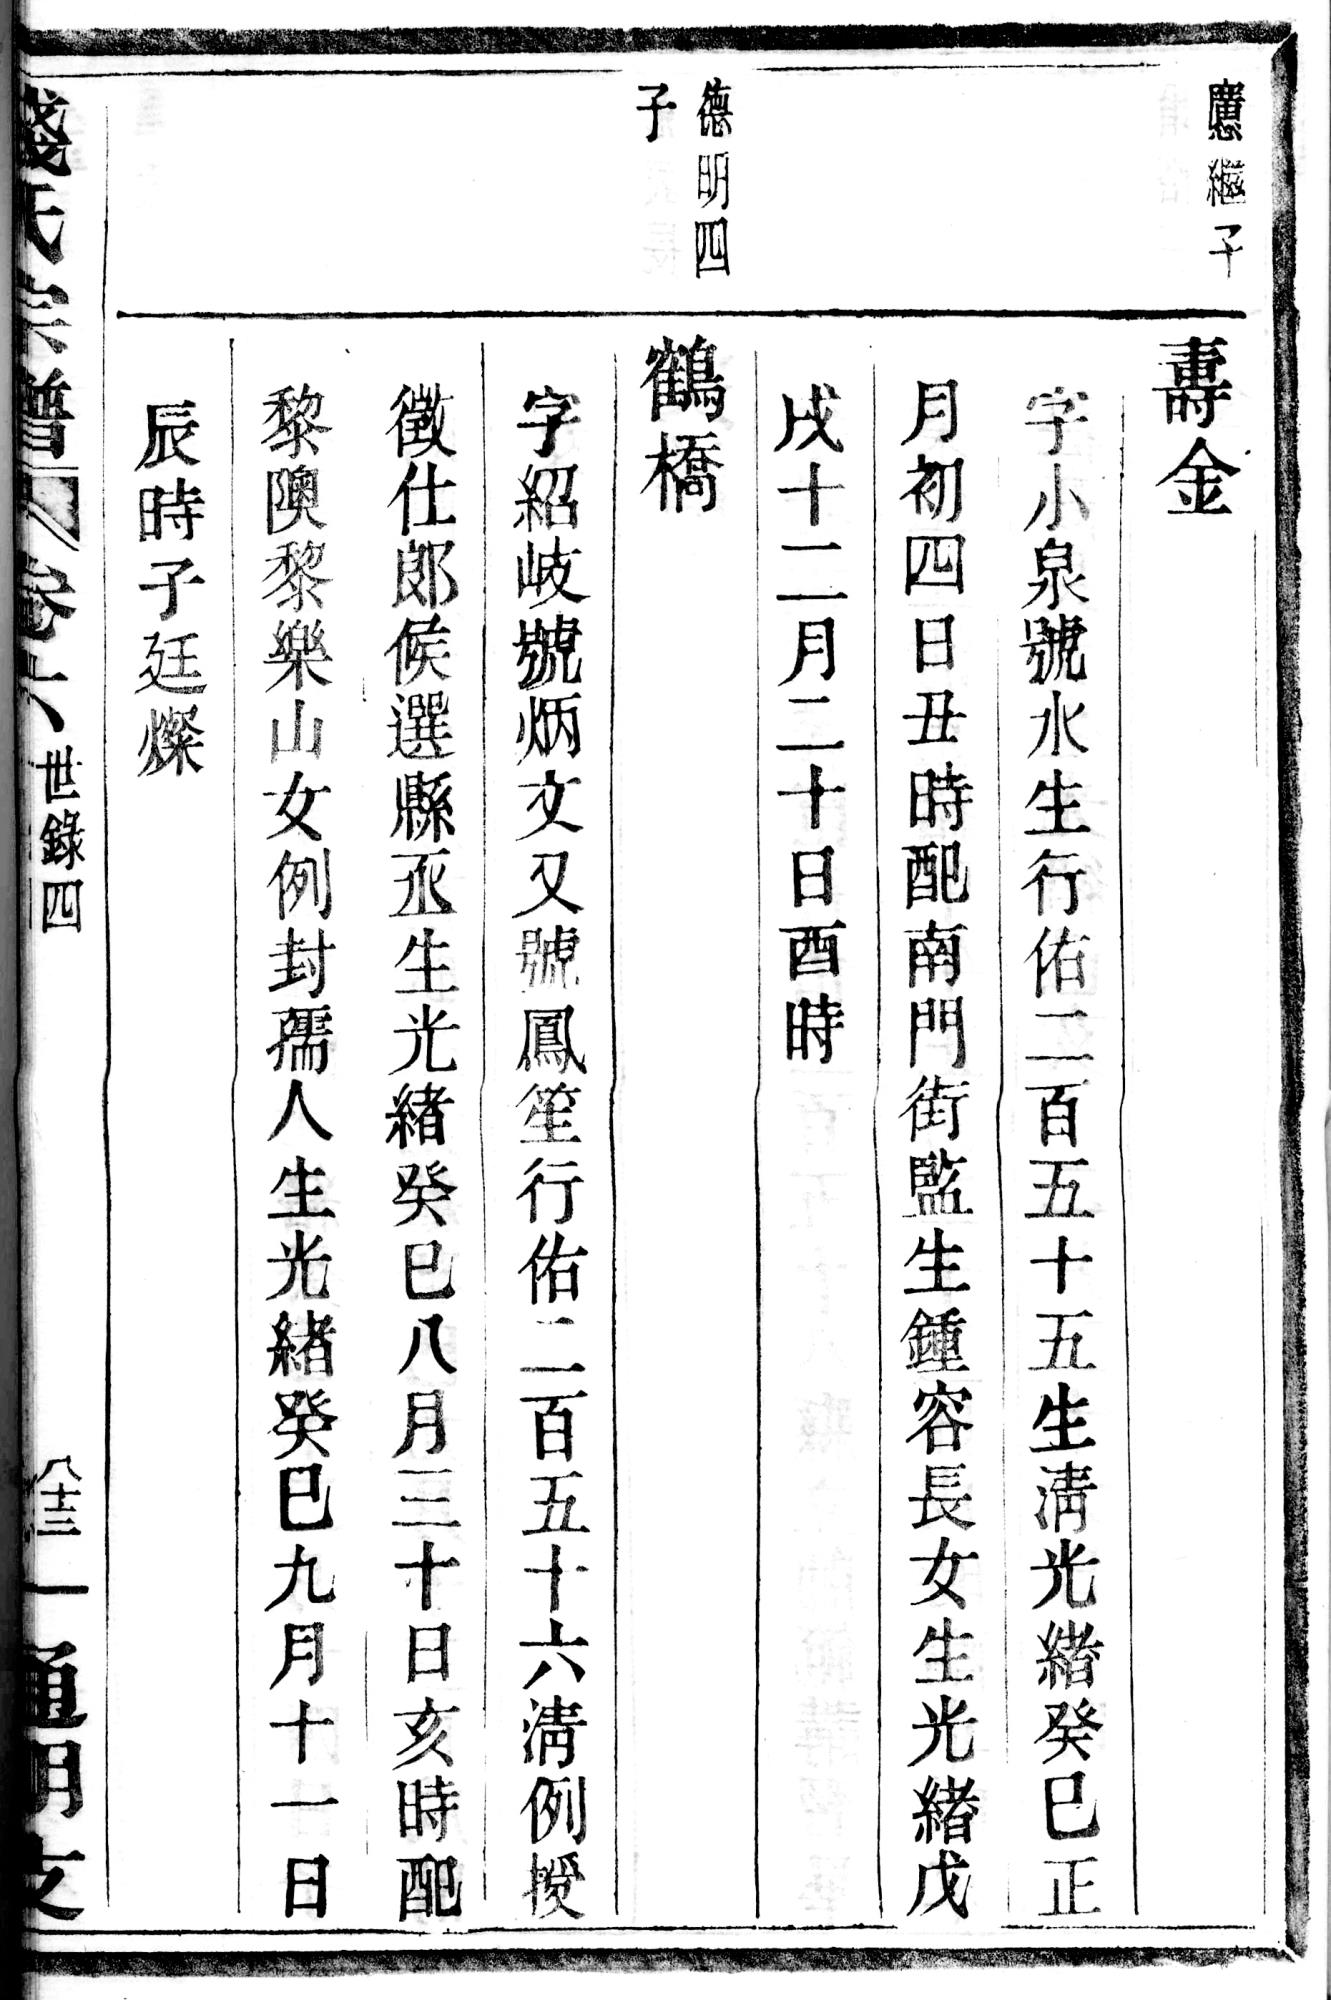 應繼子
壽金
字小泉號水生行佑二百五十五生清光緒癸巳正
月初四日丑時配南門街監生鍾容長女生光緒戊
戌十二月二十日酉時
德明四
子
鶴橋
字紹岐號炳文又號鳳笙行佑二百五十六清例授
徵仕郎候選縣丞生光緒癸巳八月三十日亥時配
黎隩黎樂山女例封孺人生光緒癸巳九月十一日
辰時子廷燦
錢氏宗譜 卷六 世錄四 八十三 通明支